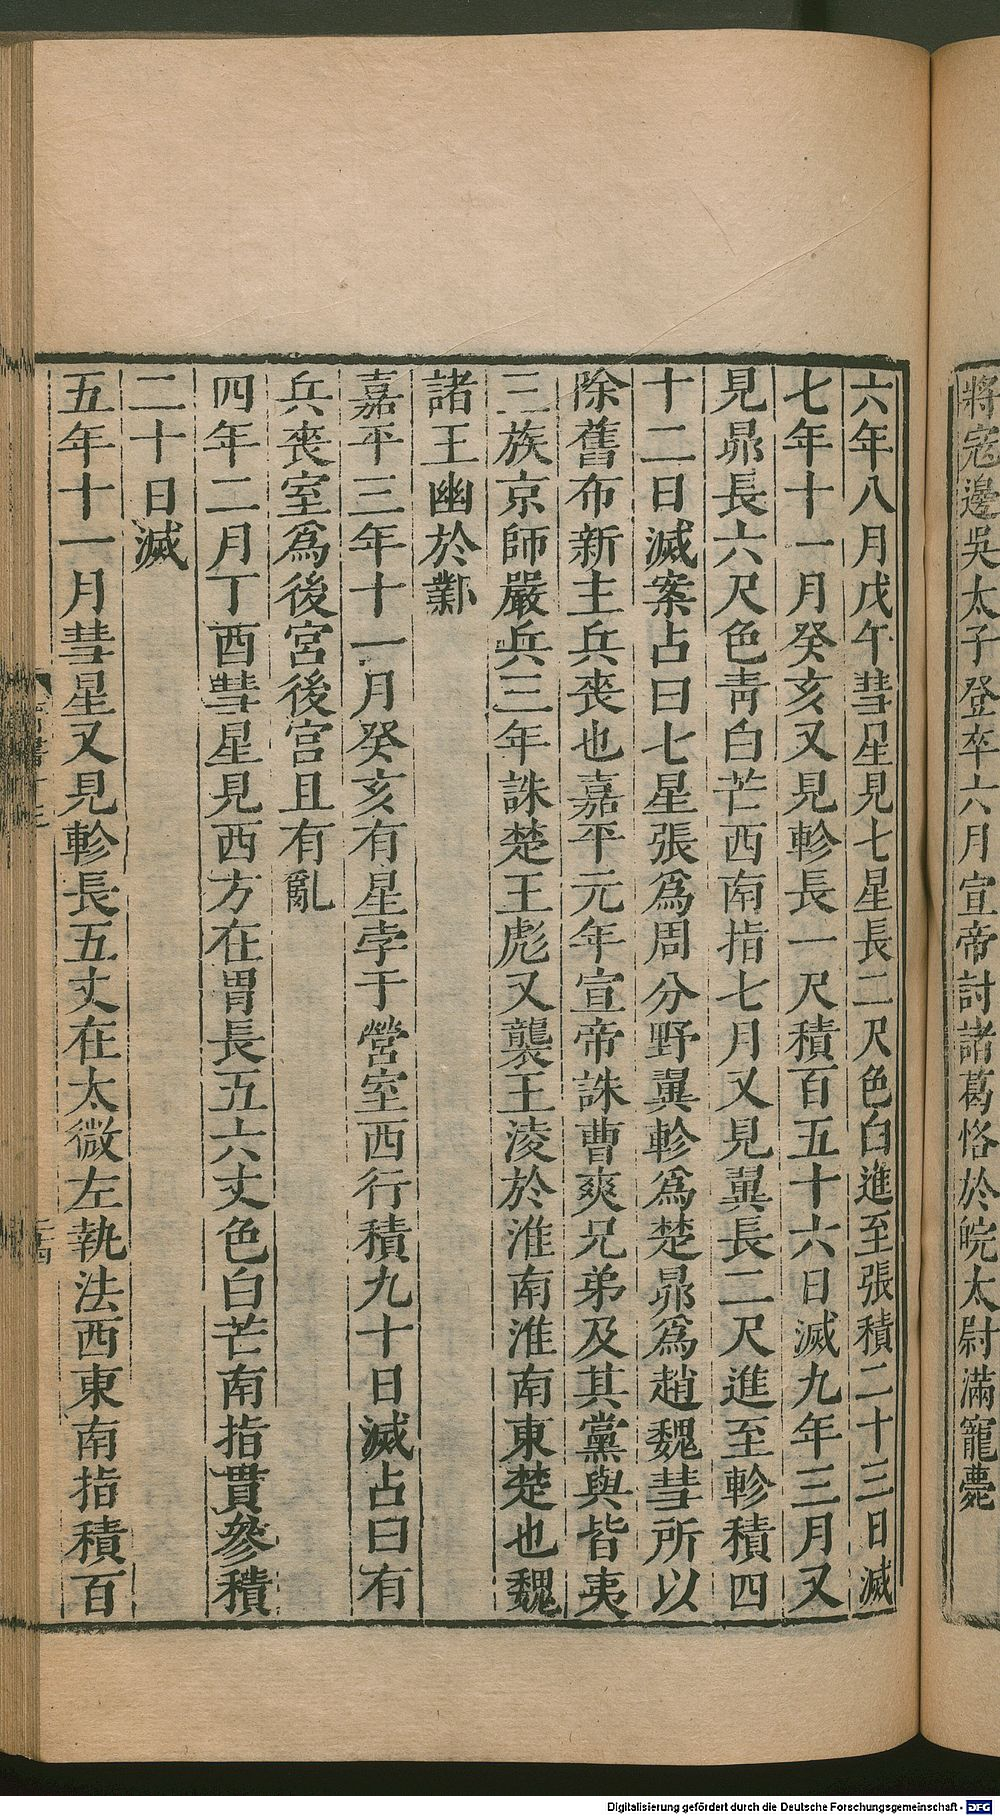 將寇邊吳太子登卒六月宣帝討諸葛恪於皖太尉滿寵薨
六年八月戊午彗星見七星長二尺色白進至張積二十三日滅
七年十一月癸亥又見軫長一尺積百五十六日滅九年三月又
見昴長六尺色靑白芒西南指七月又見翼長二尺進至軫積四
十二日滅案占曰七星張爲周分野翼軫爲楚昴爲趙魏彗所以
除舊布新主兵喪也嘉平元年宣帝誅曹爽兄弟及其黨與皆夷
三族京師嚴兵三年誅楚王彪又襲王淩於淮南淮南東楚也魏
諸王幽於鄴
嘉平三年十一月癸亥有星孛于營室西行積九十日滅占曰有
兵喪室爲後宮後宮且有亂
四年二月丁酉彗星見西方在胃長五六丈色白芒南指貫參積
二十日滅
五年十一月彗星又見軫長五丈在太微左執法西東南指積百
Digitalisierung gefördert durch die Deutsche Forschungsgemeinschaft - DFG